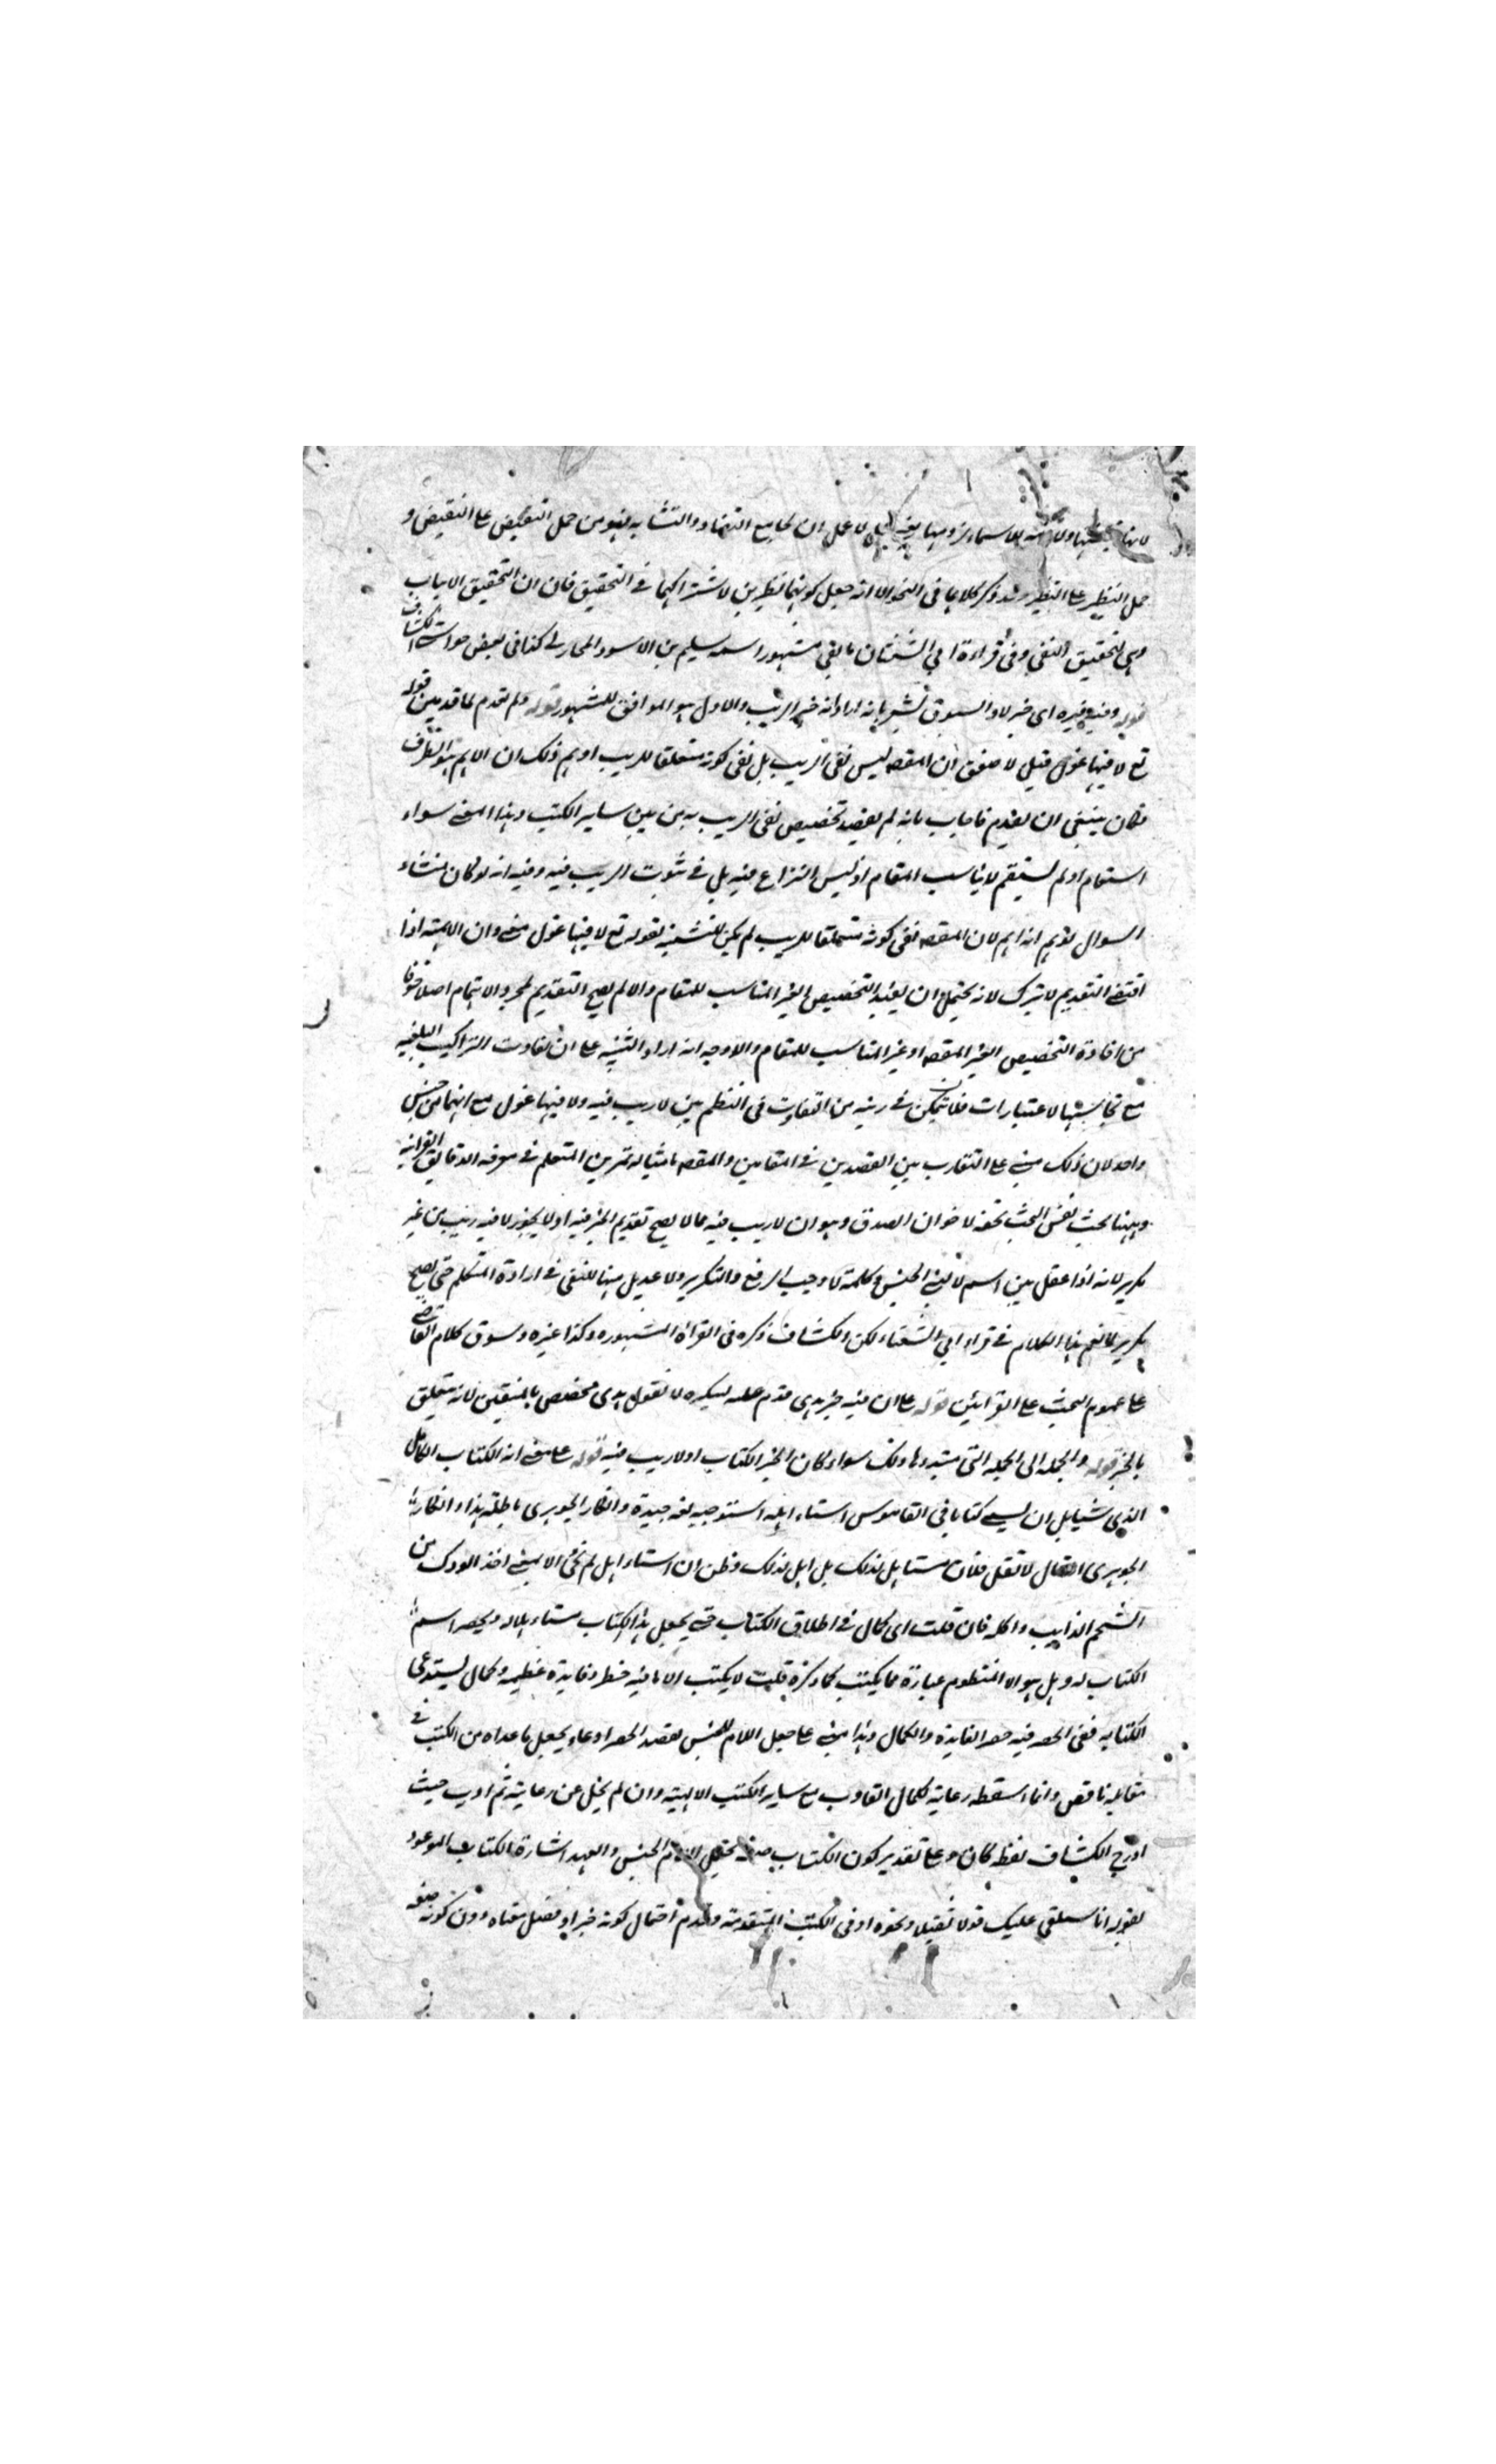 لانها نقيضها ولازمة للاسماء لزومها يعني لا يعمل لا عمل ان لجامع التضاد والتشابه فهو من حمل النقيض على النقيض و
حمل النظير على النظير وقد ذكر كلاهما في النحو الا انه جعل كونهما نظيرين لاشتراكهما في التحقيق فان ان لتحقيق الايجاب
وهي لتحقيق النفي وفي قراءة ابي الشعثاء تابعي مشهور اسمه سليم بن الاسود المحاربي كذا في بعض حواشي الكشاف
قوله وفيه خبره اي خبر لا والسوق يشعر بانه اراد انه خبر الريب والاول هو الموافق للمشهور قوله ولم تقدم لما قدم بين قوله
تع لا فيها غول قيل لا خفى ان المقصد ليس نفى الريب بل نفى كونه متعلقا للريب اوهم ذلك ان الاهم هو الظرف
فكان ينبغي ان يقدم فاجاب بانه لم يقصد تخصيص نفى الريب به من بين ساير الكتب وهذا المعنى سواء
استقام او لم يستقم لا يناسب المقام اذ ليس النزاع فيه بل في ثبوت الريب فيه وفيه انه لو كان منشاء
السوال توهم انه اهم لان المقصد نفى كونه متعلقا للريب لم يكن للتشبيه بقوله تع لا فيها غول معنى وان الاهمية اذا
اقتضى التقديم لا تترك لانه يحتمل ان يفيد التخصيص الغير المناسب للمقام والا لم يصح التقديم لمجرد الاهتمام اصلا خوفا
من افادة التخصيص الغير المقصد او غير المناسب للمقام والاوجه انه اراد التنبيه على ان تفاوت التراكيب البليغة
مع تجانسها لاعتبارات فلا تكن في ريبه من التفاوت في النظم بين لا ريب فيه ولا فيها غول مع انهما من جنس
واحد لان ذلك مبنى على التقارب بين القصدين في المقامين والمقصد بامثاله تمرين المتعلم في معرفه الدقايق القرانيه
وههنا بحث نفس البحث تحفه لاخوان الصدق وهو ان لا ريب فيه مما لا يصح تقديم الخبر فيه اذ لا يجوز لا فيه ريب من غير
تكرير لانه اذا عقل بين اسم لا لنفي الجنس وكلمة لا وجب الرفع والتكرير ولا عديل ههنا للنفي في ارادة المتكلم حتى يصح
تكرير لا نعم هذا الكلام في قراءة ابي الشعثاء لكن الكشاف ذكره في القراة المشهوره وكذا غيره وسوق كلام القاضي
على عموم البحث على القرائتين قوله على ان فيه خبر هدى قدم عليه لتنكيره لا نقول هدى مخصص بالمتقين لانه متعلق
بالخبر قوله والجمله الى الجمله التي مبتدوها ذلك سواء كان الخبر الكتاب او لا ريب فيه قوله على معنى انه الكتاب الكامل
الذي يستاهل ان يسمى كتابا في القاموس استاءهله استوجبه لغه جيدة وانكار الجوهري باطلة هذا وانكاره
الجوهري انه قال لا تقل فلان مستاهل لذلك بل اهل لذلك وظن ان استاءهل لم تجئ الا بمعنى اخذ الودك من
الشحم الذايب واكله فان قلت اي كمال في اطلاق الكتاب حتى يجعل هذا الكتاب مستاءهلا له ويحصر اسم
الكتاب له وهل هو الا المنظوم عبارة مما يكتب كما ذكره قلت لا يكتب الا ما فيه خطر وفايدة عظيمه وكمال يستدعي
الكتابه ففي الحصر فيه حصر الفايدة والكمال وهذا مبنى على جعل اللام للجنس بقصد الحصر ادعاء بجعل ما عداه من الكتب في
مقابله ناقص وانما اسقطه رعاية لكمال التادب مع ساير الكتب الالهية وان لم يخل عن رعاية ثم ادب حيث
ادرج الكشاف لفظ كان وعلى تقدير كون الكتاب صفه يحتمل اللام الجنس والعهد اشارة للكتاب الموعود
لقوله انا سنلقي عليك قولا ثقيلا ونحوه او في الكتب المتقدمة وقدم احتمال كونه خبرا وفصل معناه دون كونه صفه